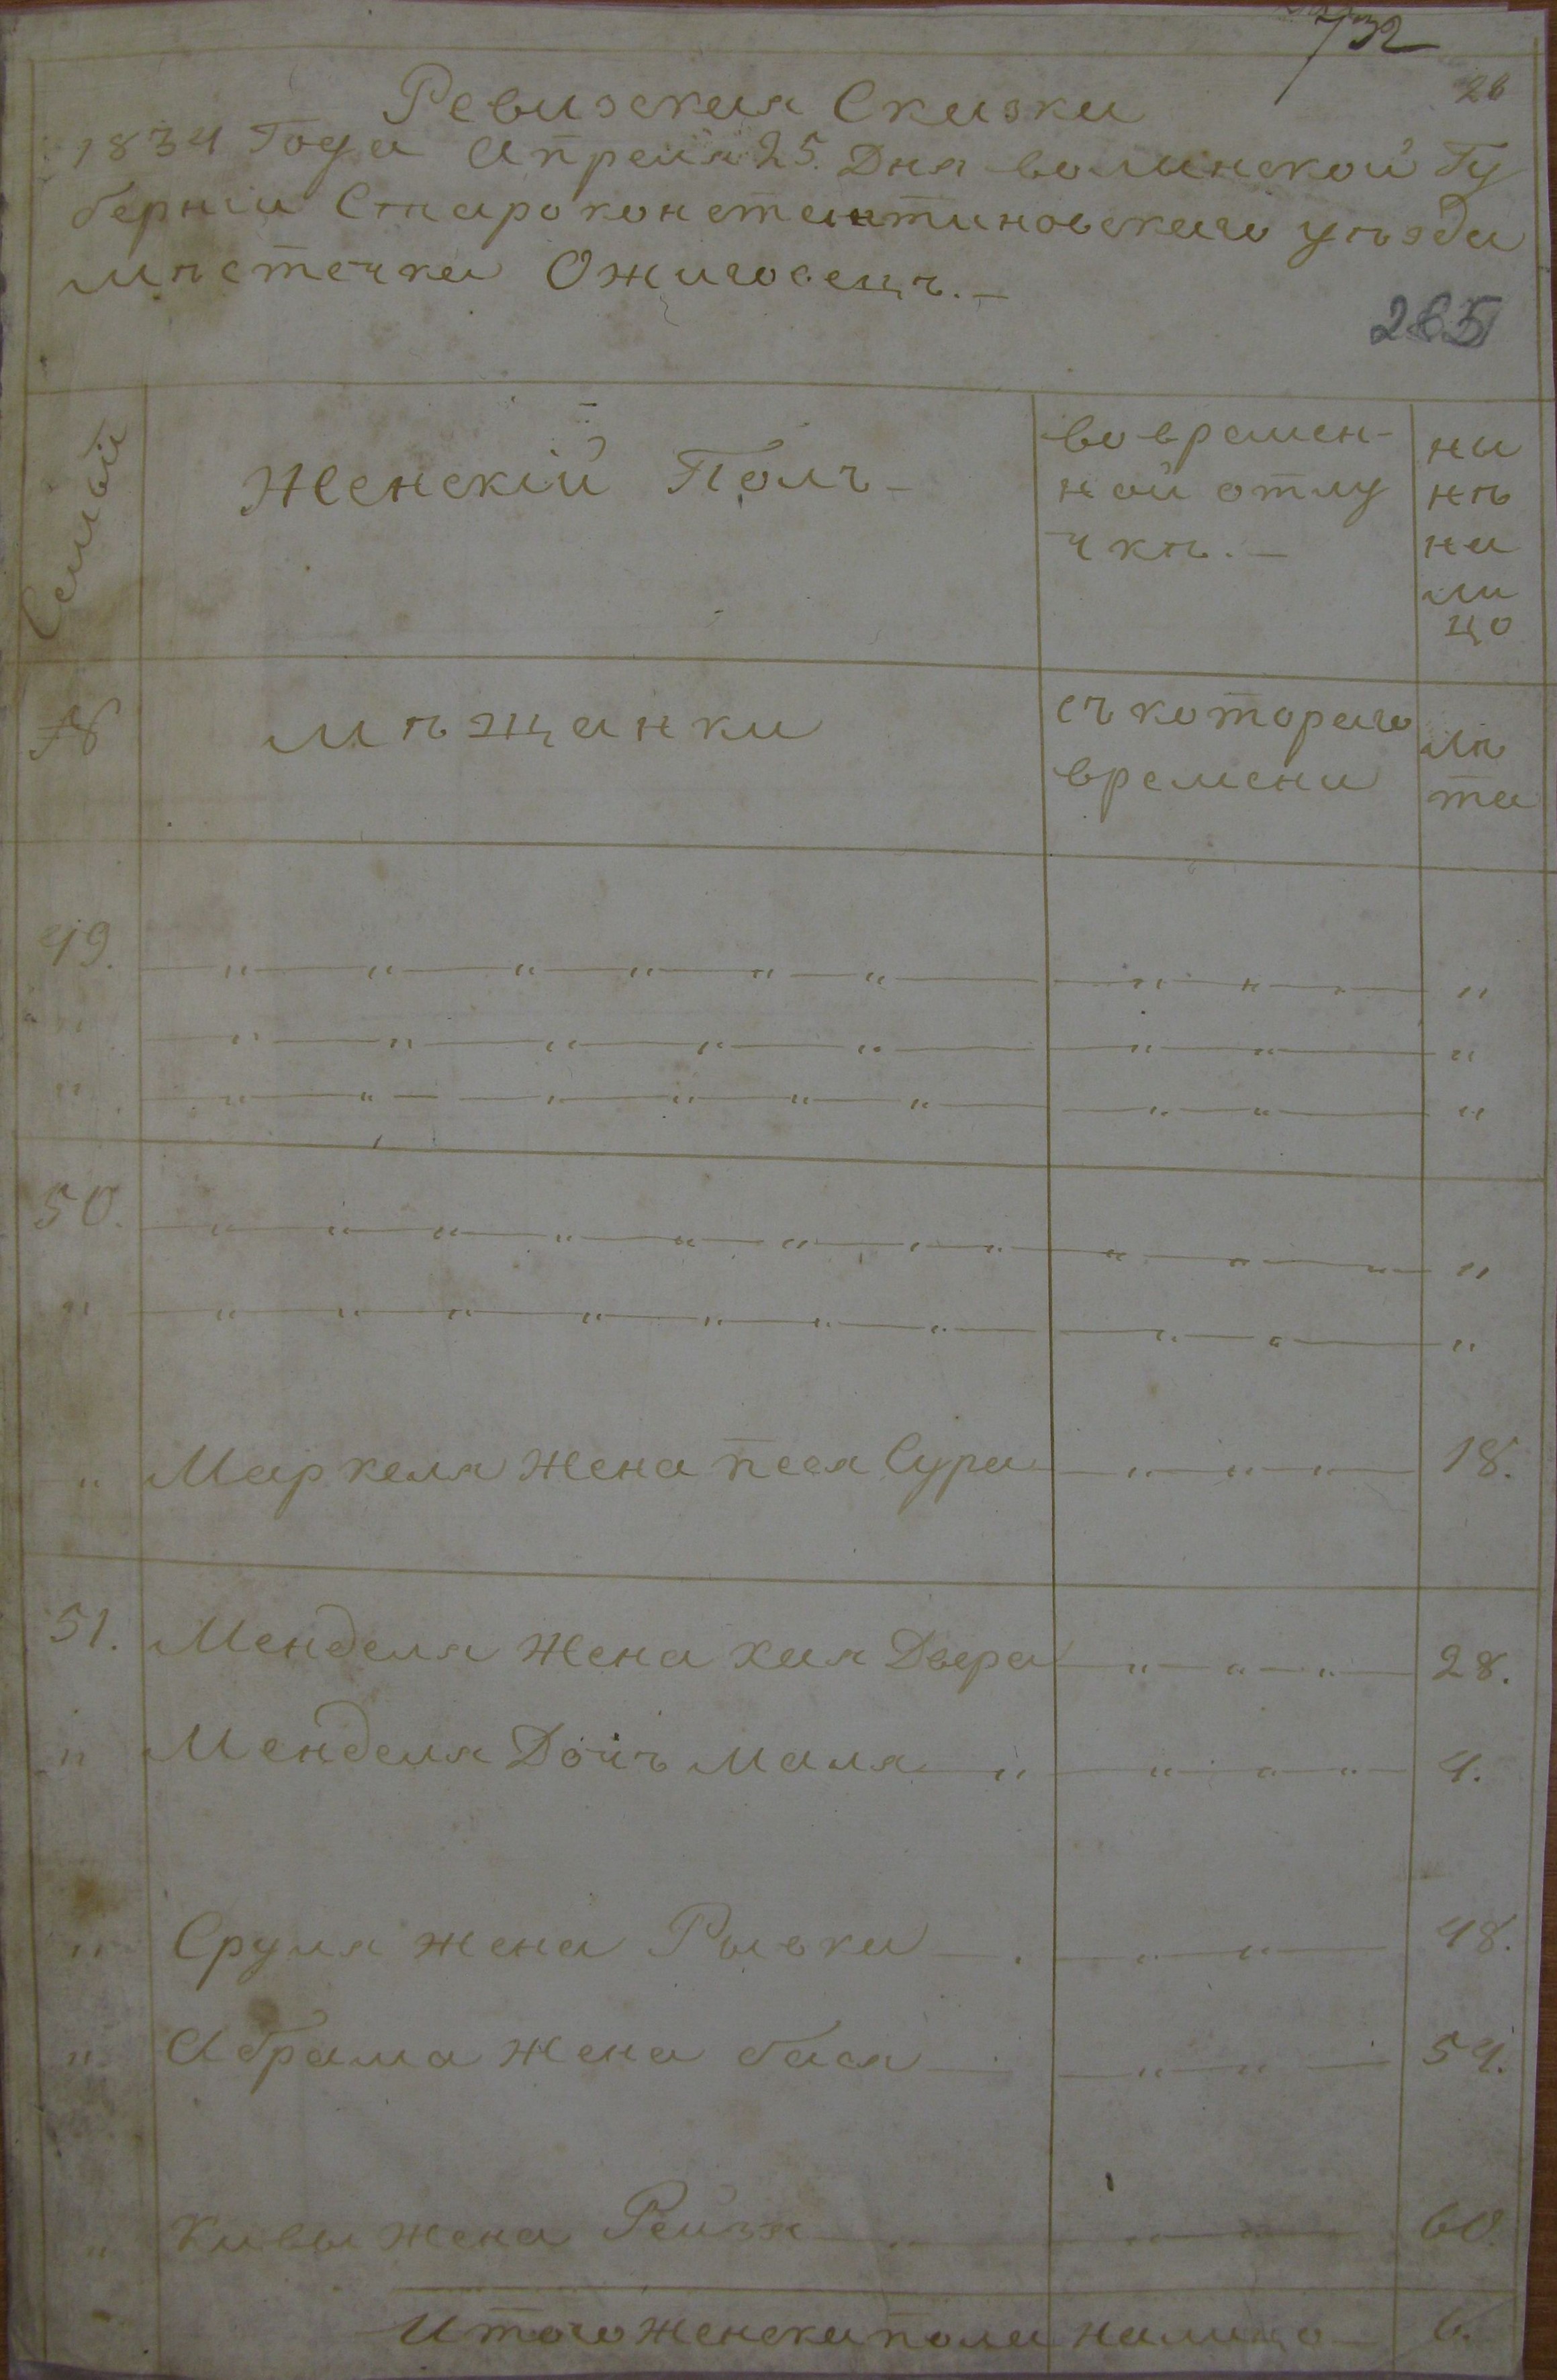 732
26
Ревизская Сказка
1834 Года Апреля 25. Дня волинской Гу
берніи Староконстантиновскаго уъзда
мъстечка Ожиговецъ.—
265
Семьи
Женскій Полъ—
во времен-
ной отлу
чкъ.—
на
нъ
на
ли
цо
№
мъщанки
съ котораго
времени
лъ
та
49. — " — " — " — " — " — " — " — " — "
" — " — " — " — " — " — " — " — "
" — " — " — " — " — " — " — " — " — "
50. — " — " — " — " — " — " — " — " — " — " — " — "
" — " — " — " — " — " — " — " — " — " — "
" Маркеля жена песя Сура — " — " — " — 18.
51. Менделя жена хая Двера — " — " — " — 28.
" Менделя Дочъ маля — " — " — " — " — 4.
" Сруля жена Рывка — " — " — 48.
" Абрама жена бася — " — " — 54.
" Кивы жена Рейзя — " — " — " — 60.
Итого женска пола налицо — 6.